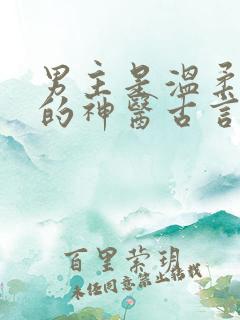 男主是温柔
的神醫古言
百里萦玥
未经同意禁止转载